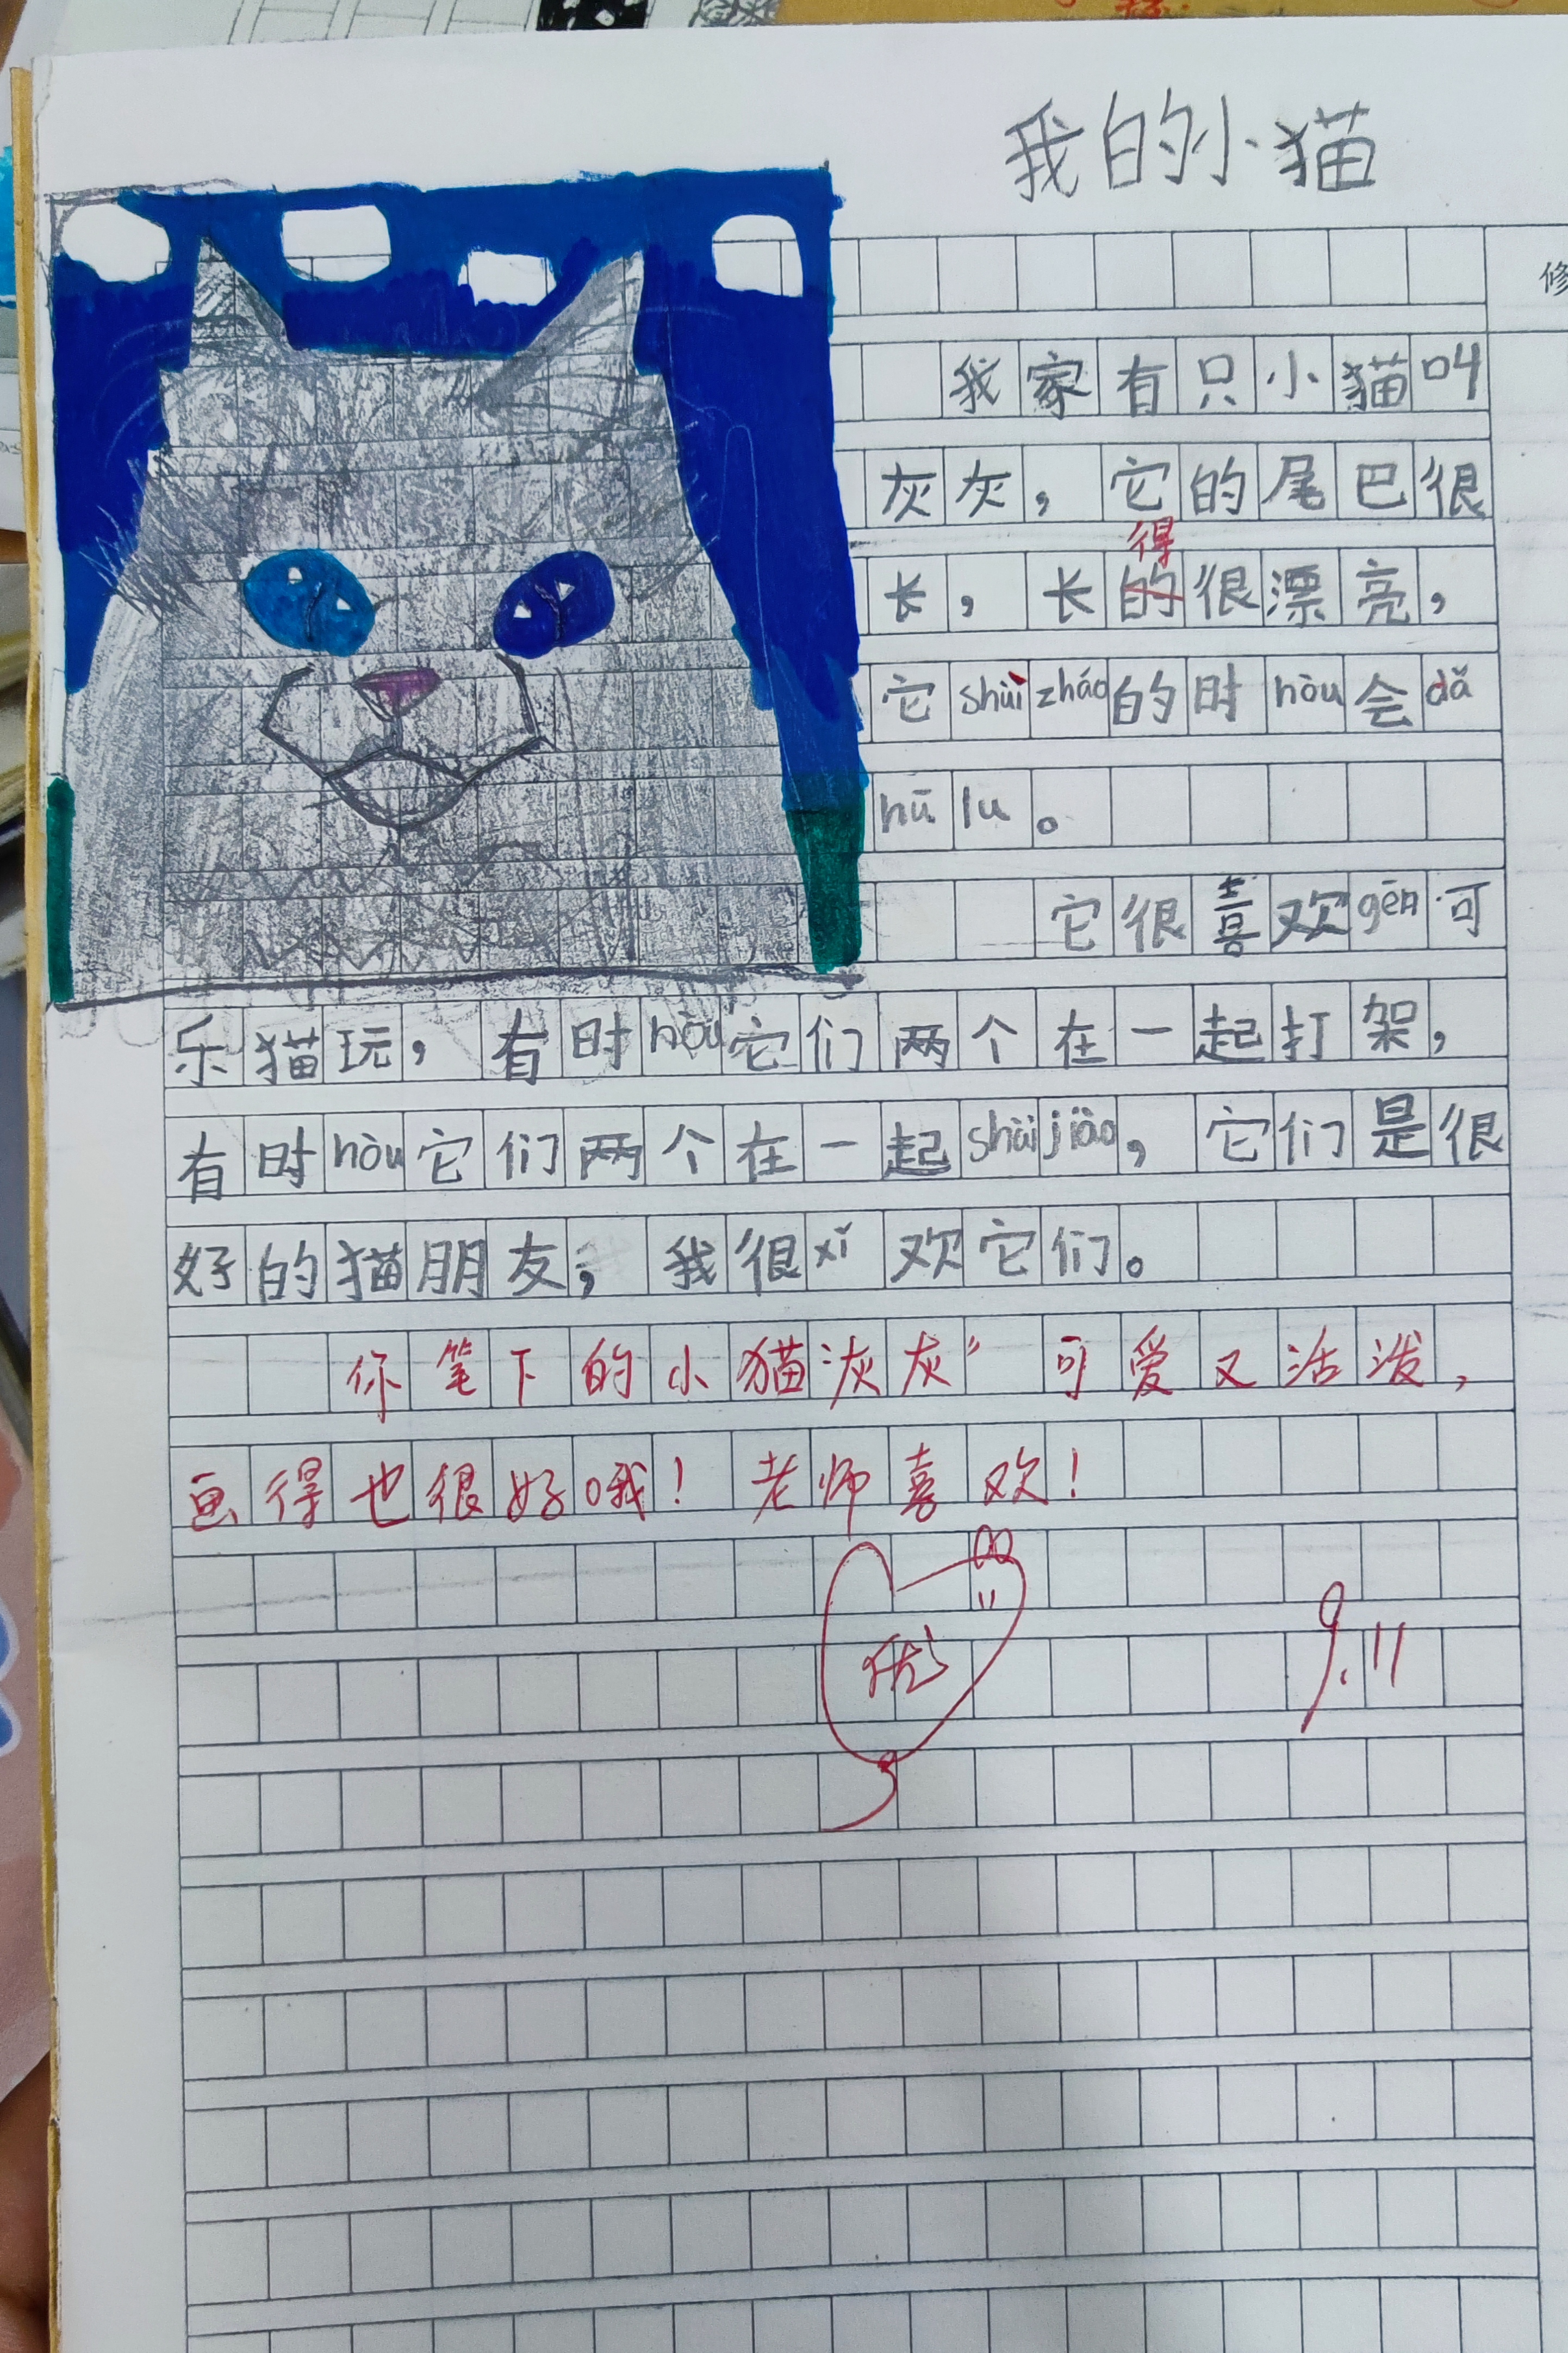 我的小猫
修
我家有只小猫叫
灰灰，它的尾巴很
得
长，长的很漂亮，
它shùi zháo的时hòu会dǎ
hū lu。
它很喜欢gēn可
乐猫玩，有时hòu它们两个在一起打架，
有时hòu它们两个在一起shùi jiào，它们是很
好的猫朋友，我很xǐ欢它们。
你笔下的小猫“灰灰”可爱又活泼，
画得也很好哦！老师喜欢！
优
9.11